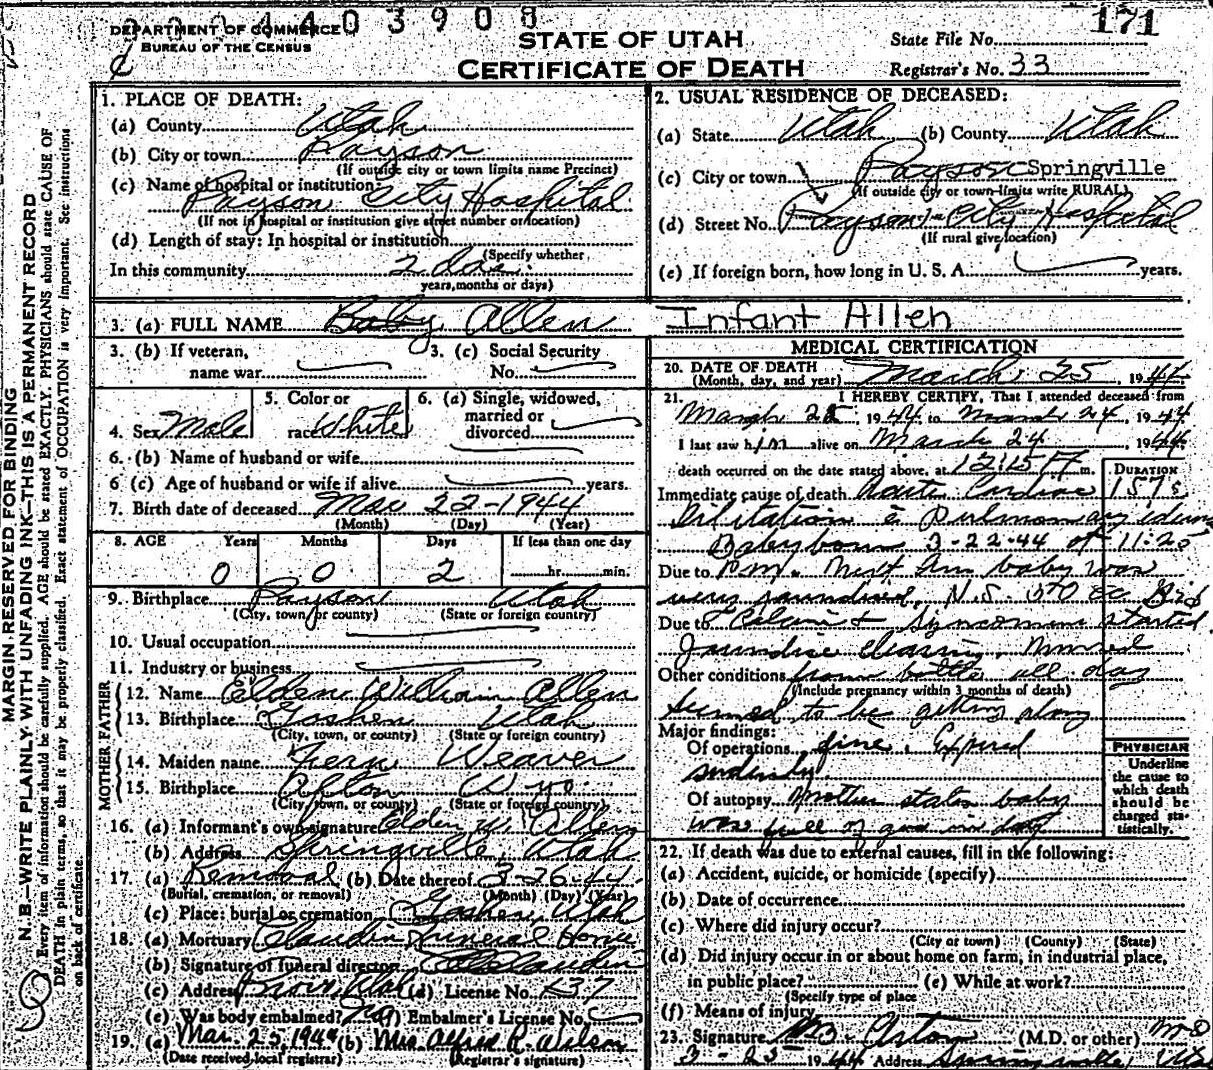 2 0 0 4 4 0 3 9 0 8
171
DEPARTMENT OF COMMERCE
BUREAU OF THE CENSUS
STATE OF UTAH
CERTIFICATE OF DEATH
State File No.
Registrar's No. 33
MARGIN RESERVED FOR BINDING
N. B.—WRITE PLAINLY WITH UNFADING INK—THIS IS A PERMANENT RECORD
Every item of information should be carefully supplied. AGE should be stated EXACTLY. PHYSICIANS should state CAUSE OF
DEATH in plain terms, so that it may be properly classified. Exact statement of OCCUPATION is very important. See instructions
on back of certificate.
1. PLACE OF DEATH:
(a) County Utah
(b) City or town Payson
(If outside city or town limits name Precinct)
(c) Name of hospital or institution:
Payson City Hospital
(If not in hospital or institution give street number or location)
(d) Length of stay: In hospital or institution
(Specify whether
In this community 2 das.
years, months or days)
2. USUAL RESIDENCE OF DECEASED:
(a) State Utah (b) County Utah
(c) City or town Payson Springville
(If outside city or town limits write RURAL)
(d) Street No. Payson City Hospital
(If rural give location)
(e) If foreign born, how long in U. S. A. years.
3. (a) FULL NAME Baby Allen Infant Allen
3. (b) If veteran,
name war
3. (c) Social Security
No.
4. Sex Male
5. Color or
race White
6. (a) Single, widowed,
married or
divorced
6. (b) Name of husband or wife
6 (c) Age of husband or wife if alive years.
7. Birth date of deceased Mar 22-1944
(Month) (Day) (Year)
8. AGE Years Months Days If less than one day
0 0 2 hr. min.
9. Birthplace Payson Utah
(City, town, or county) (State or foreign country)
10. Usual occupation
11. Industry or business
FATHER
12. Name Elden William Allen
13. Birthplace Goshen Utah
(City, town, or county) (State or foreign country)
MOTHER
14. Maiden name Fern Weaver
15. Birthplace Afton Wyo
(City, town, or county) (State or foreign country)
16. (a) Informant's own signature Elden W. Allen
(b) Address Springville, Utah
17. (a) Removal (b) Date thereof 3-26-44
(Burial, cremation, or removal) (Month) (Day) (Year)
(c) Place: burial or cremation Goshen Utah
18. (a) Mortuary Claudin Funeral Home
(b) Signature of funeral director Claudin
(c) Address Provo, Utah (d) License No. 37
(e) Was body embalmed? No (f) Embalmer's License No.
19. (a) Mar. 25, 1944 (b) Mrs. Alfred R. Wilson
(Date received local registrar) (Registrar's signature)
MEDICAL CERTIFICATION
20. DATE OF DEATH
(Month, day, and year) March 25, 1944
21. I HEREBY CERTIFY, That I attended deceased from
March 22, 1944 to March 24, 1944
I last saw him alive on March 24 1944
death occurred on the date stated above, at 12:15 P m.
DURATION
Immediate cause of death Acute Cardiac
Dilitation c Pulmonary edema
Baby born 3-22-44 at 11:25
Due to P.M. Next Am baby was
very jaundiced. N.S.
Due to started
Jaundice clearing. Nursed
Other conditions from bottle all day
(Include pregnancy within 3 months of death)
seemed to be getting along
Major findings:
Of operations fine. Expired
sudenly.
Of autopsy Mother states baby
was full of
PHYSICIAN
Underline
the cause to
which death
should be
charged sta-
tistically.
22. If death was due to external causes, fill in the following:
(a) Accident, suicide, or homicide (specify)
(b) Date of occurrence
(c) Where did injury occur?
(City or town) (County) (State)
(d) Did injury occur in or about home on farm, in industrial place,
in public place? (e) While at work?
(Specify type of place
(f) Means of injury
23. Signature Orton (M.D. or other) MD
3-25 1944 Address Springville, Utah